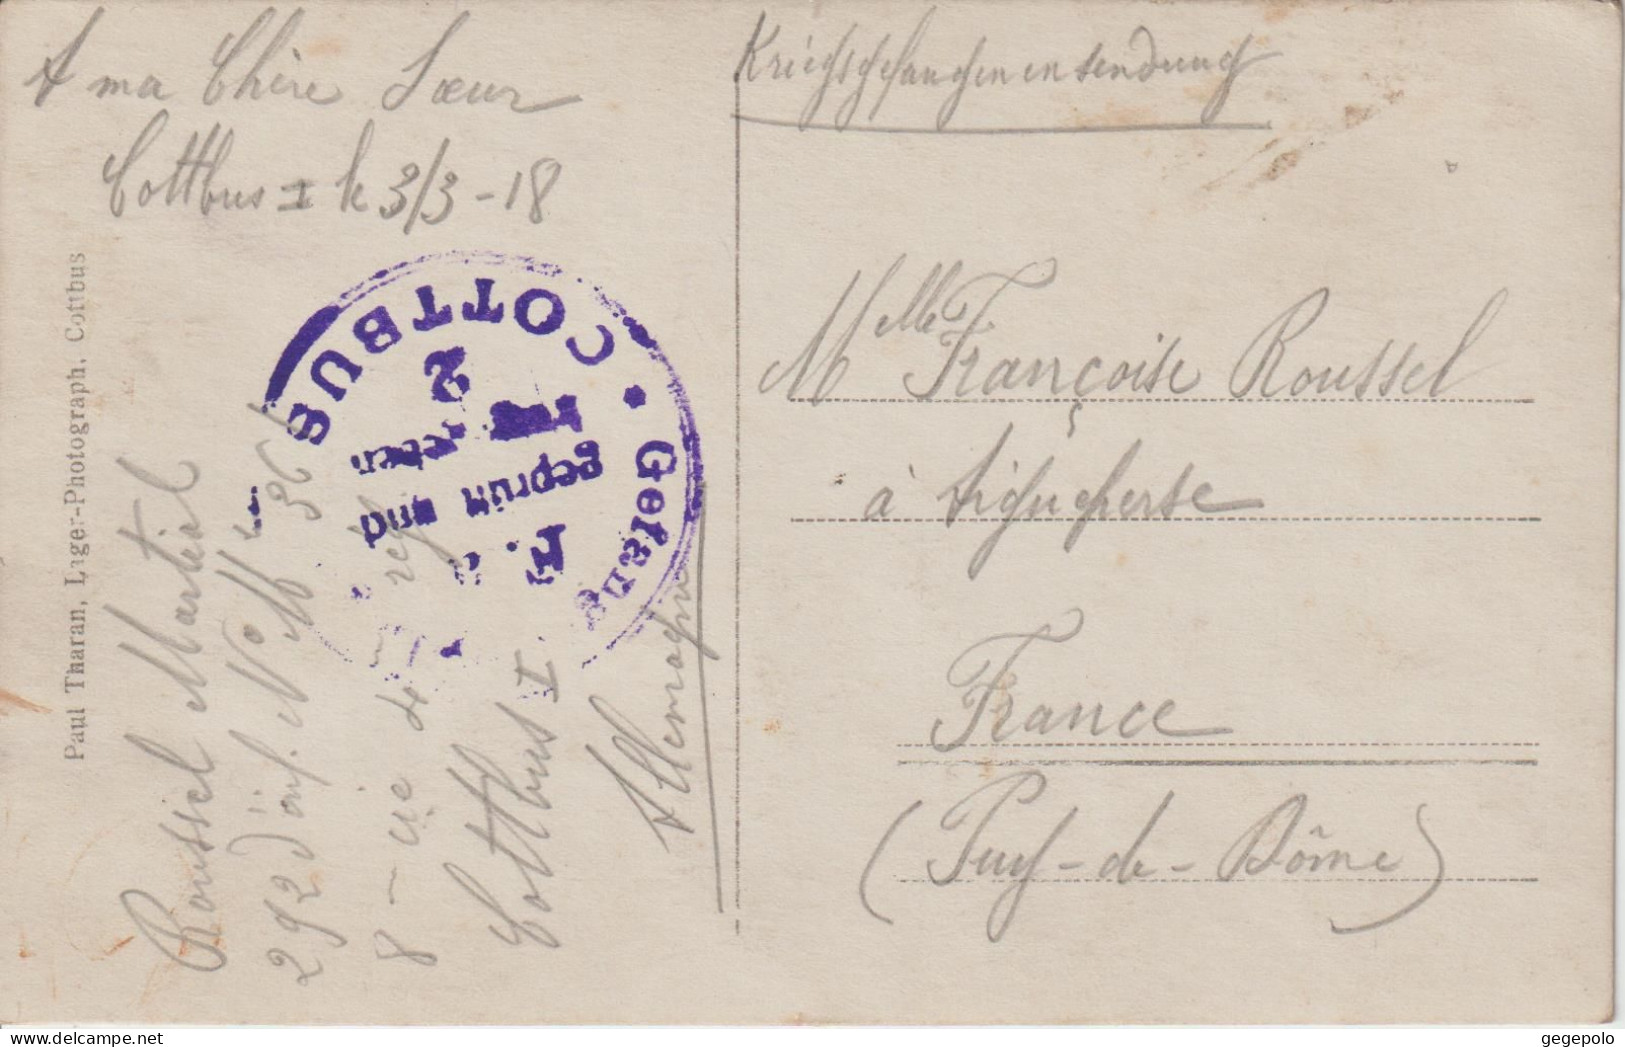 A ma Chère Sœur
Cottbus I le 3/3-18
Kriegsgefangenensendung
Melle Françoise Roussel
à Aigueperse
France
(Puy-de-Dôme)
Paul Tharan, Lager-Photograph, Cottbus
COTTBUS
Gefang
geprüft und
2
Roussel Martial
292 d'inf. No Mle 36
8 - cie 4
Cottbus I
Allemagne
gegepolo